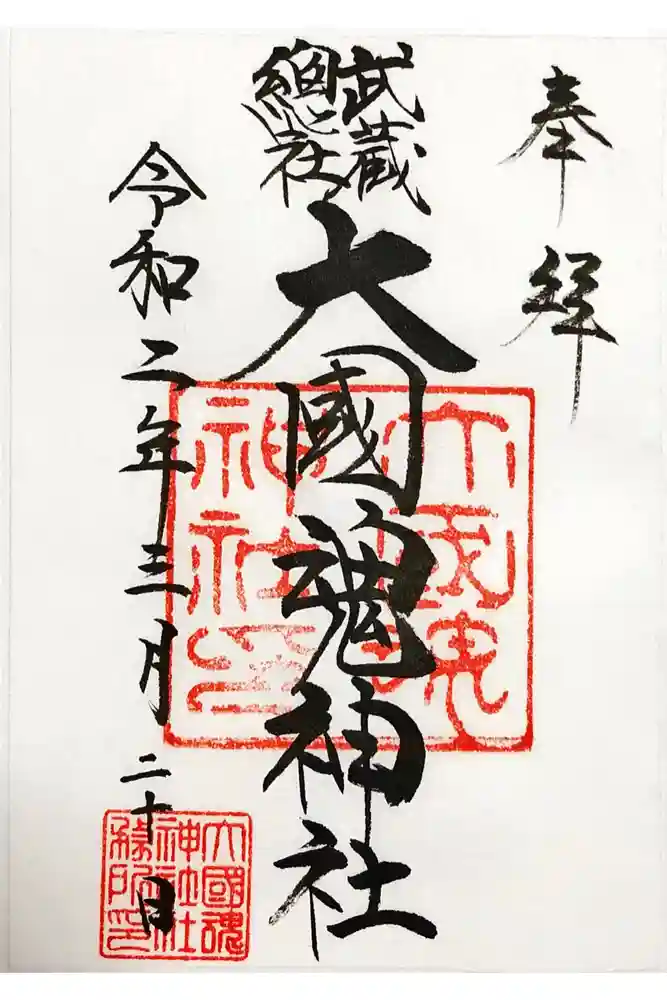 奉拝
武蔵
總社
大國魂神社
令和二年三月二十日
大國魂
神社社
務所印